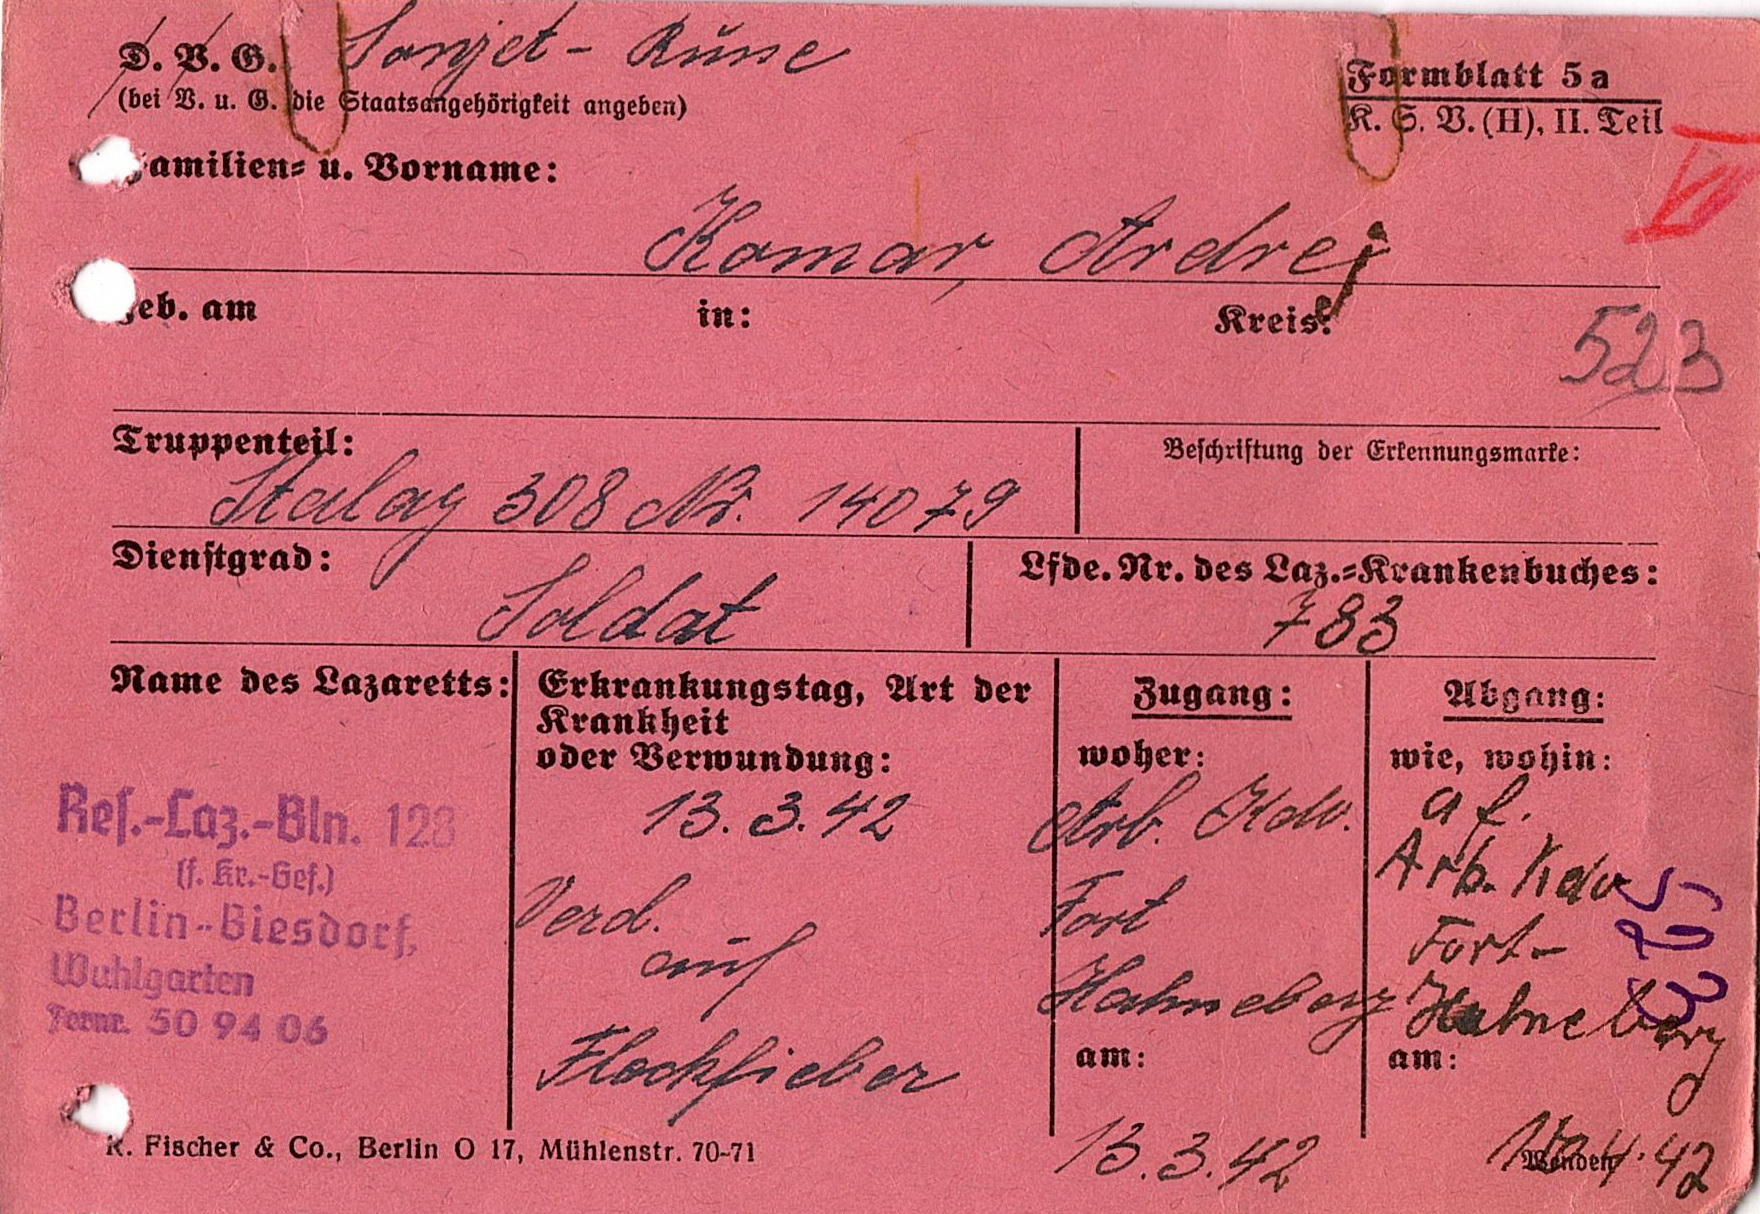 D. V. G. Sowjet-Russe
(bei V. u. G. die Staatsangehörigkeit angeben)
Formblatt 5a
K. S. V. (H), II. Teil
VII
Familien- u. Vorname:
Komar, Andrej
Geb. am in: Kreis:
523
Truppenteil: Beschriftung der Erkennungsmarke:
Stalag 308 Nr. 14079
Dienstgrad: Lfde. Nr. des Laz.-Krankenbuches:
Soldat 783
Name des Lazaretts:
Res.-Laz.-Bln. 128
(f. Kr.-Gef.)
Berlin-Biesdorf,
Wuhlgarten
Fernr. 50 94 06
Erkrankungstag, Art der
Krankheit
oder Verwundung:
13. 3. 42
Verd.
auf
Fleckfieber
Zugang:
woher:
Arb. Kdo.
Fort
Hahneberg
am:
13. 3. 42
Abgang:
wie, wohin:
a f.
Arb. Kdo
Fort-
Hahneberg
523
am:
4. 42
R. Fischer & Co., Berlin O 17, Mühlenstr. 70-71
Wenden